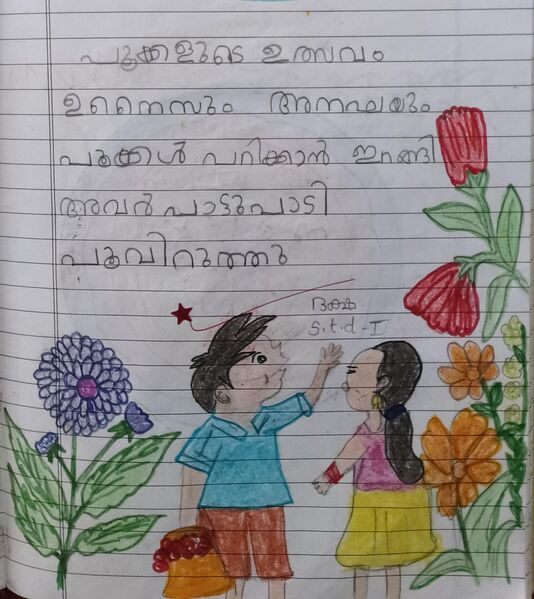 പൂക്കളുടെ ഉത്സവം
ഉനൈസും അനഘയും
പൂക്കൾ പറിക്കാൻ ഇറങ്ങി
അവർ പാട്ടുപാടി
പൂവിറുത്തു
ദക്ഷ
S.t.d-I